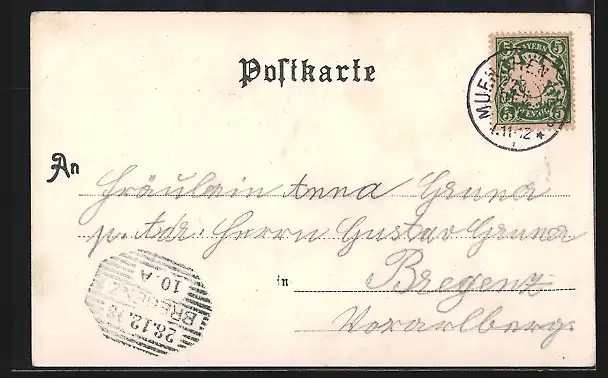 Postkarte
5 BAYERN 5
5 PFENNIG 5
MUENCHEN
An Fräulein Anna Gruna
p. Adr. Herrn Gustav Gruna
in Bregenz
Vorarlberg.
BREGENZ 1
28.12.
10.A